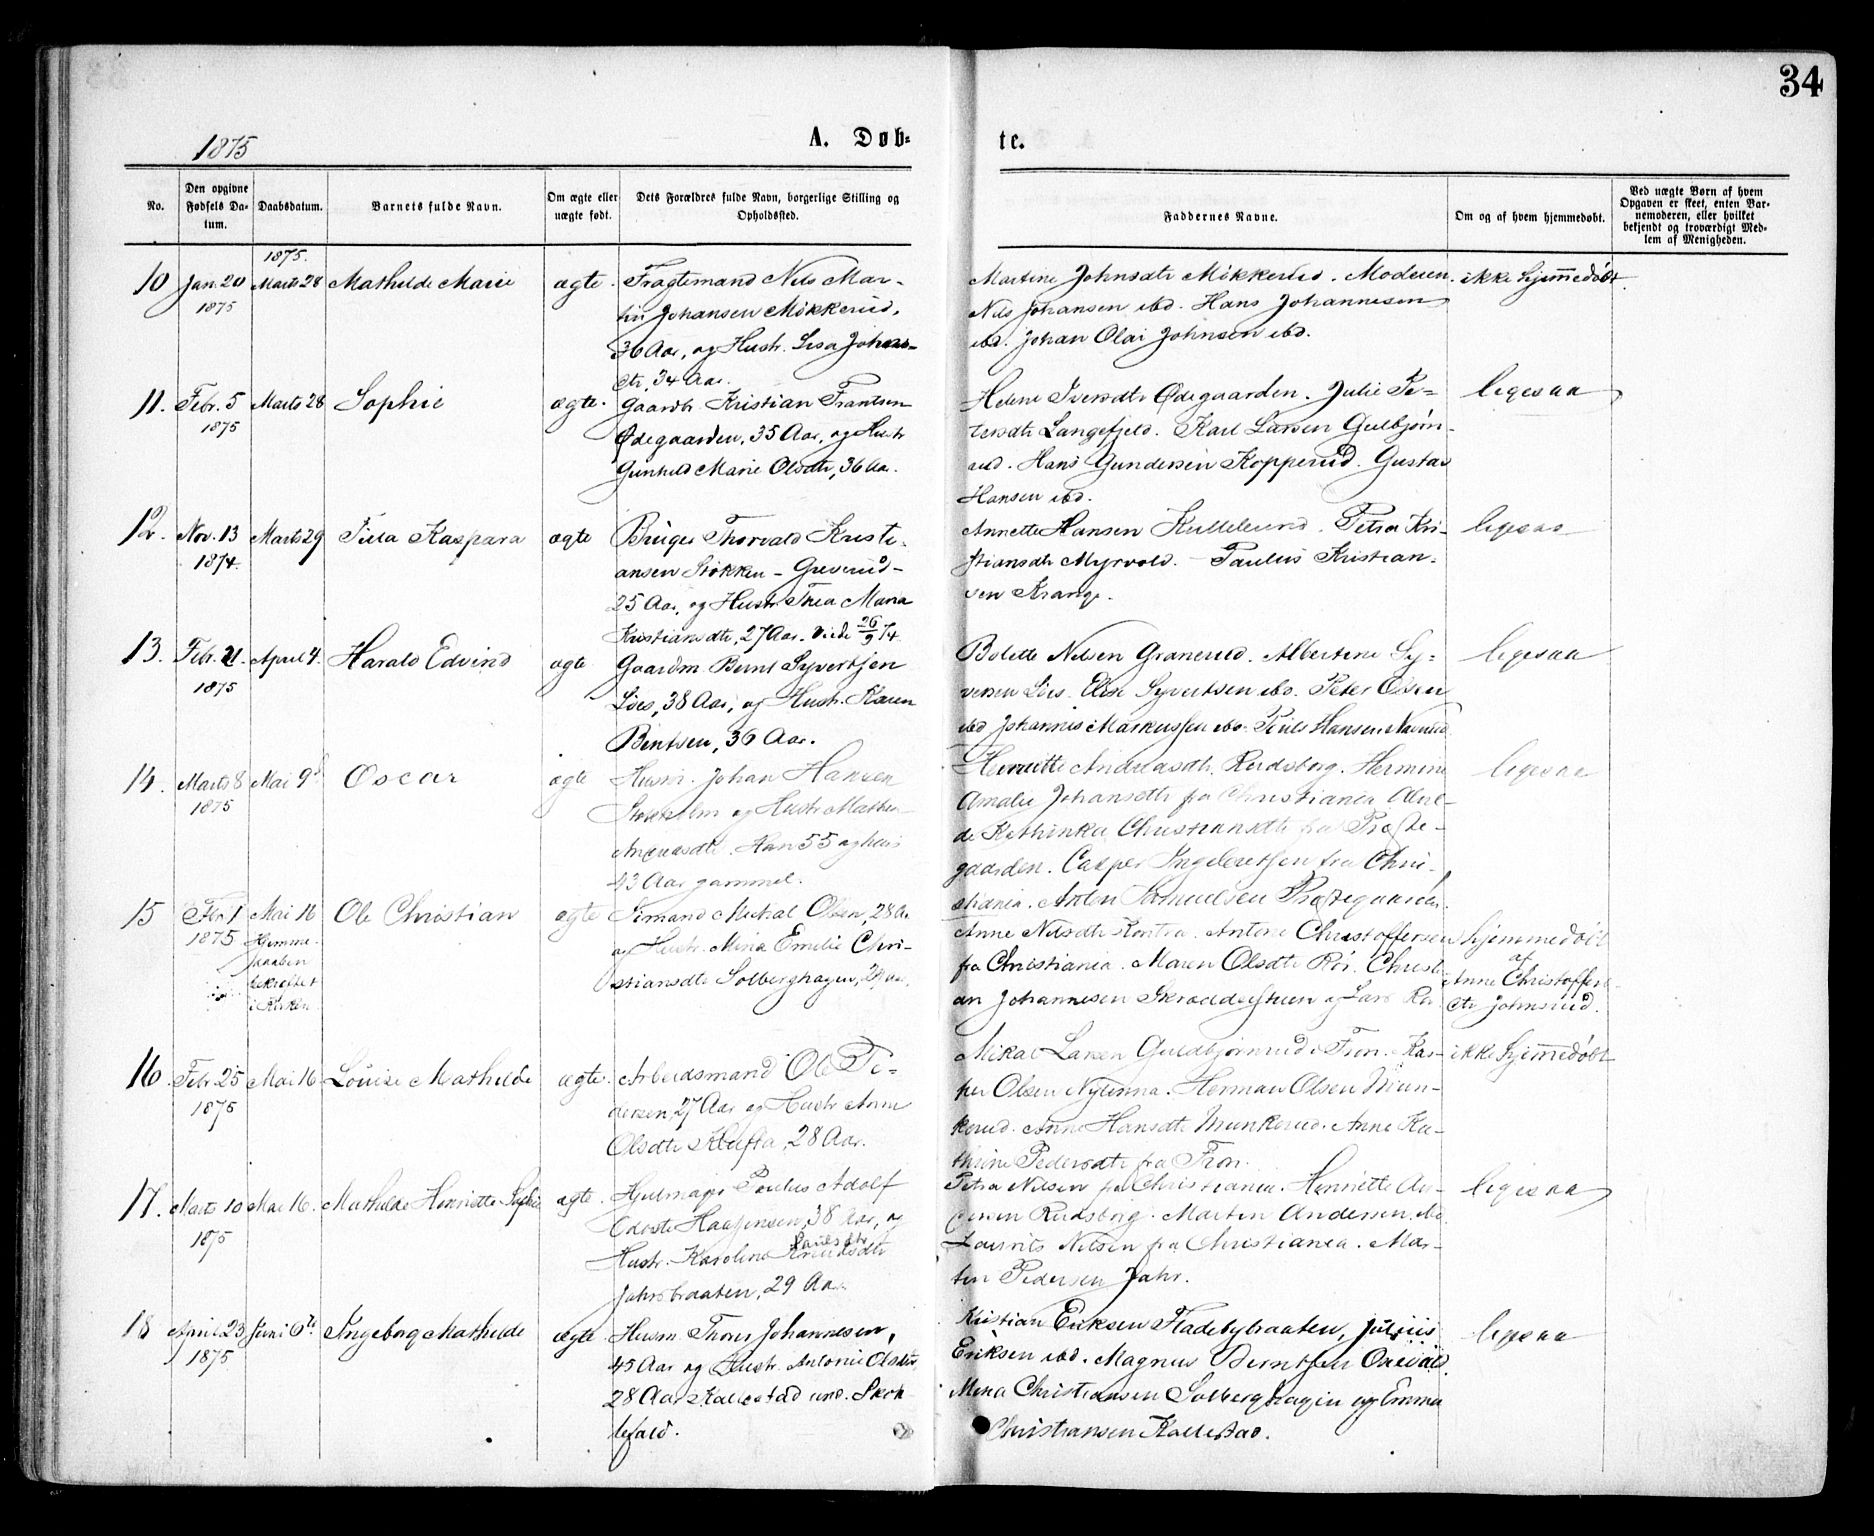 34
1875
A. Døb-
te.
No.
Den opgivne
Fødsels Da-
tum.
Daabsdatum.
Barnets fulde Navn.
Om ægte eller
uægte født.
Dets Forældres fulde Navn, borgerlige Stilling og
Opholdssted.
Faddernes Navne.
Om og af hvem hjemmedøbt.
Ved uægte Børn af hvem
Opgaven er skeet, enten Bar-
nemoderen, eller hvilket
bekjendt og troværdigt Med-
lem af Menigheden.
10
Jan. 20
1875
1875.
Marts 28
Mathilde Marie
ægte.
Fragtemand Nils Mar-
tin Johansen Mökkerud,
36 Aar, og Hustr. Lisa Johans-
dtr, 34 Aar.
Martine Johnsdtr Mökkerud. Moderen.
Nils Johansen ibd. Hans Johannesen
ibd. Johan Olai Johnsen ibd.
ikke hjemmedöbt.
11.
Febr. 5
1875
Marts 28
Sophie
ægte.
Gaardbr. Kristian Frantsen
Ödegaarden, 35 Aar, og Hustr
Gunhild Marie Olsdtr, 36 Aar.
Helene Iversdtr Ödegaarden. Julie Pe-
tersdtr Langefjeld. Karl Larsen Gulbjørn-
rud. Hans Gundersen Kopperud. Gustav
Hansen ibd.
ligesaa
12.
Nov. 13
1874.
Marts 29
Kaspara
ægte
Bruger Thorvald Kristi-
ansen Stökken - Greverud -
25 Aar, og Hustr. Thea Maria
Kristiansdtr, 27 Aar. Viede 26/9 74.
Annette Hansen Petra Kri-
stiansdtr Myrvold. - Paulus Kristian-
sen Krange.
ligesaa
13.
Febr. 21
1875
April 4.
Harald Edvind
ægte
Gaardm Bernt Syvertsen
Lies, 38 Aar, og Hustr. Karen
Bentsen, 36 Aar.
Bolette Nilsen Granerud. Albertine Sy-
versen Lies. Elise Syvertsen ibd. Peter Olsen
ibd Johannis Markussen ibd. Hansen
ligesaa
14.
Marts 8
1875
Mai 9d
Oscar
ægte
Husm. Johan Hansen
Stokholm og Hustr. Mathea
Andreasdtr. Han 55 og hun
43 Aar gammel.
Henriette Andreasdtr. Rudsborg. Hermine
Amalie Johansdtr fra Christiania. Mal-
de Kathinka Christiansdtr fra Præste-
gaarden. Casper Ingebretsen fra Chri-
stiania. Anton Samuelsen Præstegaarden.
ligesaa
15
Febr 1
1875
Mai 16
Hjemme-
daaben
bekræftet
i Kirken
Ole Christian
ægte
Mikal Olsen, 28 A.
og Hustr. Mina Emilie Chri-
stiansdtr Solberghagen, 29 Aar.
Anne Nilsdtr Kontra. Antone Christoffersen
fra Christiania. Maren Olsdtr Rör. Christi-
an Johannesen Skrædderstuen og Lars Rör
hjemmedöbt
af
Anne Christoffers-
dtr Johnsrud.
16
Febr 25
1875
Mai 16
Louise Mathilde
ægte.
Arbeidsmand Ole Pe-
dersen, 27 Aar og Hustr Anne
Olsdtr Klufta, 28 Aar.
Mikal Larsen Guldbjørnrud i Fron. Kas-
per Olsen Nylenna. Herman Olsen Mun-
kerud. Anne Hansdtr Munkerud. Anne Ka-
thrine Pedersdtr fra Fron.
ikke hjemmedöbt
17.
Marts 10
1875
Mai 16.
Mathilde Henriette Sophie
ægte.
Hjulmager Paulus Adolf
Haagensen, 38 Aar, og
Paulsdtr
Hustr. Karoline Knudsdtr
Jahrsbraaten, 29 Aar.
Petra Nilsen fra Christiania. Henriette An-
dersen Rudsborg. Martin Andersen ibd.
Laurits Nilsen fra Christiania. Mar-
tin Pedersen Jahr.
ligesaa
18
April 23
1875
Juni 6te
Ingeborg Mathilde
ægte
Husm. Thorer Johannesen,
45 Aar og Hustr. Antonie Olsdtr
28 Aar Kallestad und. Skok-
lefald.
Kristian Eriksen Fladebybraaten, Julius
Eriksen ibd. Magnus Berntsen Oxevold,
Mina Christiansen Solberghagen og Emma
Christiansen Kallestad.
ligesaa